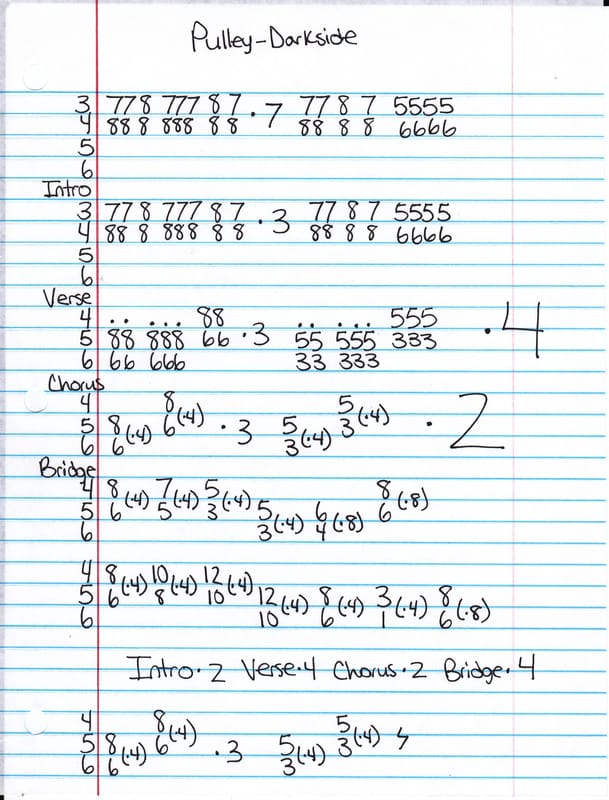 Pulley-Darkside
3 77 8 777 8 7 · 7 77 8 7 5555
4 88 8 888 8 8 88 8 8 6666
5
6
Intro
3 77 8 777 8 7 · 3 77 8 7 5555
4 88 8 888 8 8 88 8 8 6666
5
6
Verse
4 .. ... 88 .. ... 555
5 88 888 66 · 3 55 555 333 · 4
6 66 666 33 333
Chorus
4 8 5
5 8 (·4) 6 (·4) · 3 5 (·4) 3 (·4) · 2
6 6 3
Bridge
4 8 (·4) 7 (·4) 5 (·4) 8 (·8)
5 6 5 3 5 (·4) 6 (·8) 6
6 3 4
4 8 (·4) 10 (·4) 12 (·4)
5 6 8 10 12 (·4) 8 (·4) 3 (·4) 8 (·8)
6 10 6 1 6
Intro·2 Verse·4 Chorus·2 Bridge·4
4 8 (·4) 5 (·4)
5 8 (·4) 6 · 3 5 (·4) 3
6 6 3